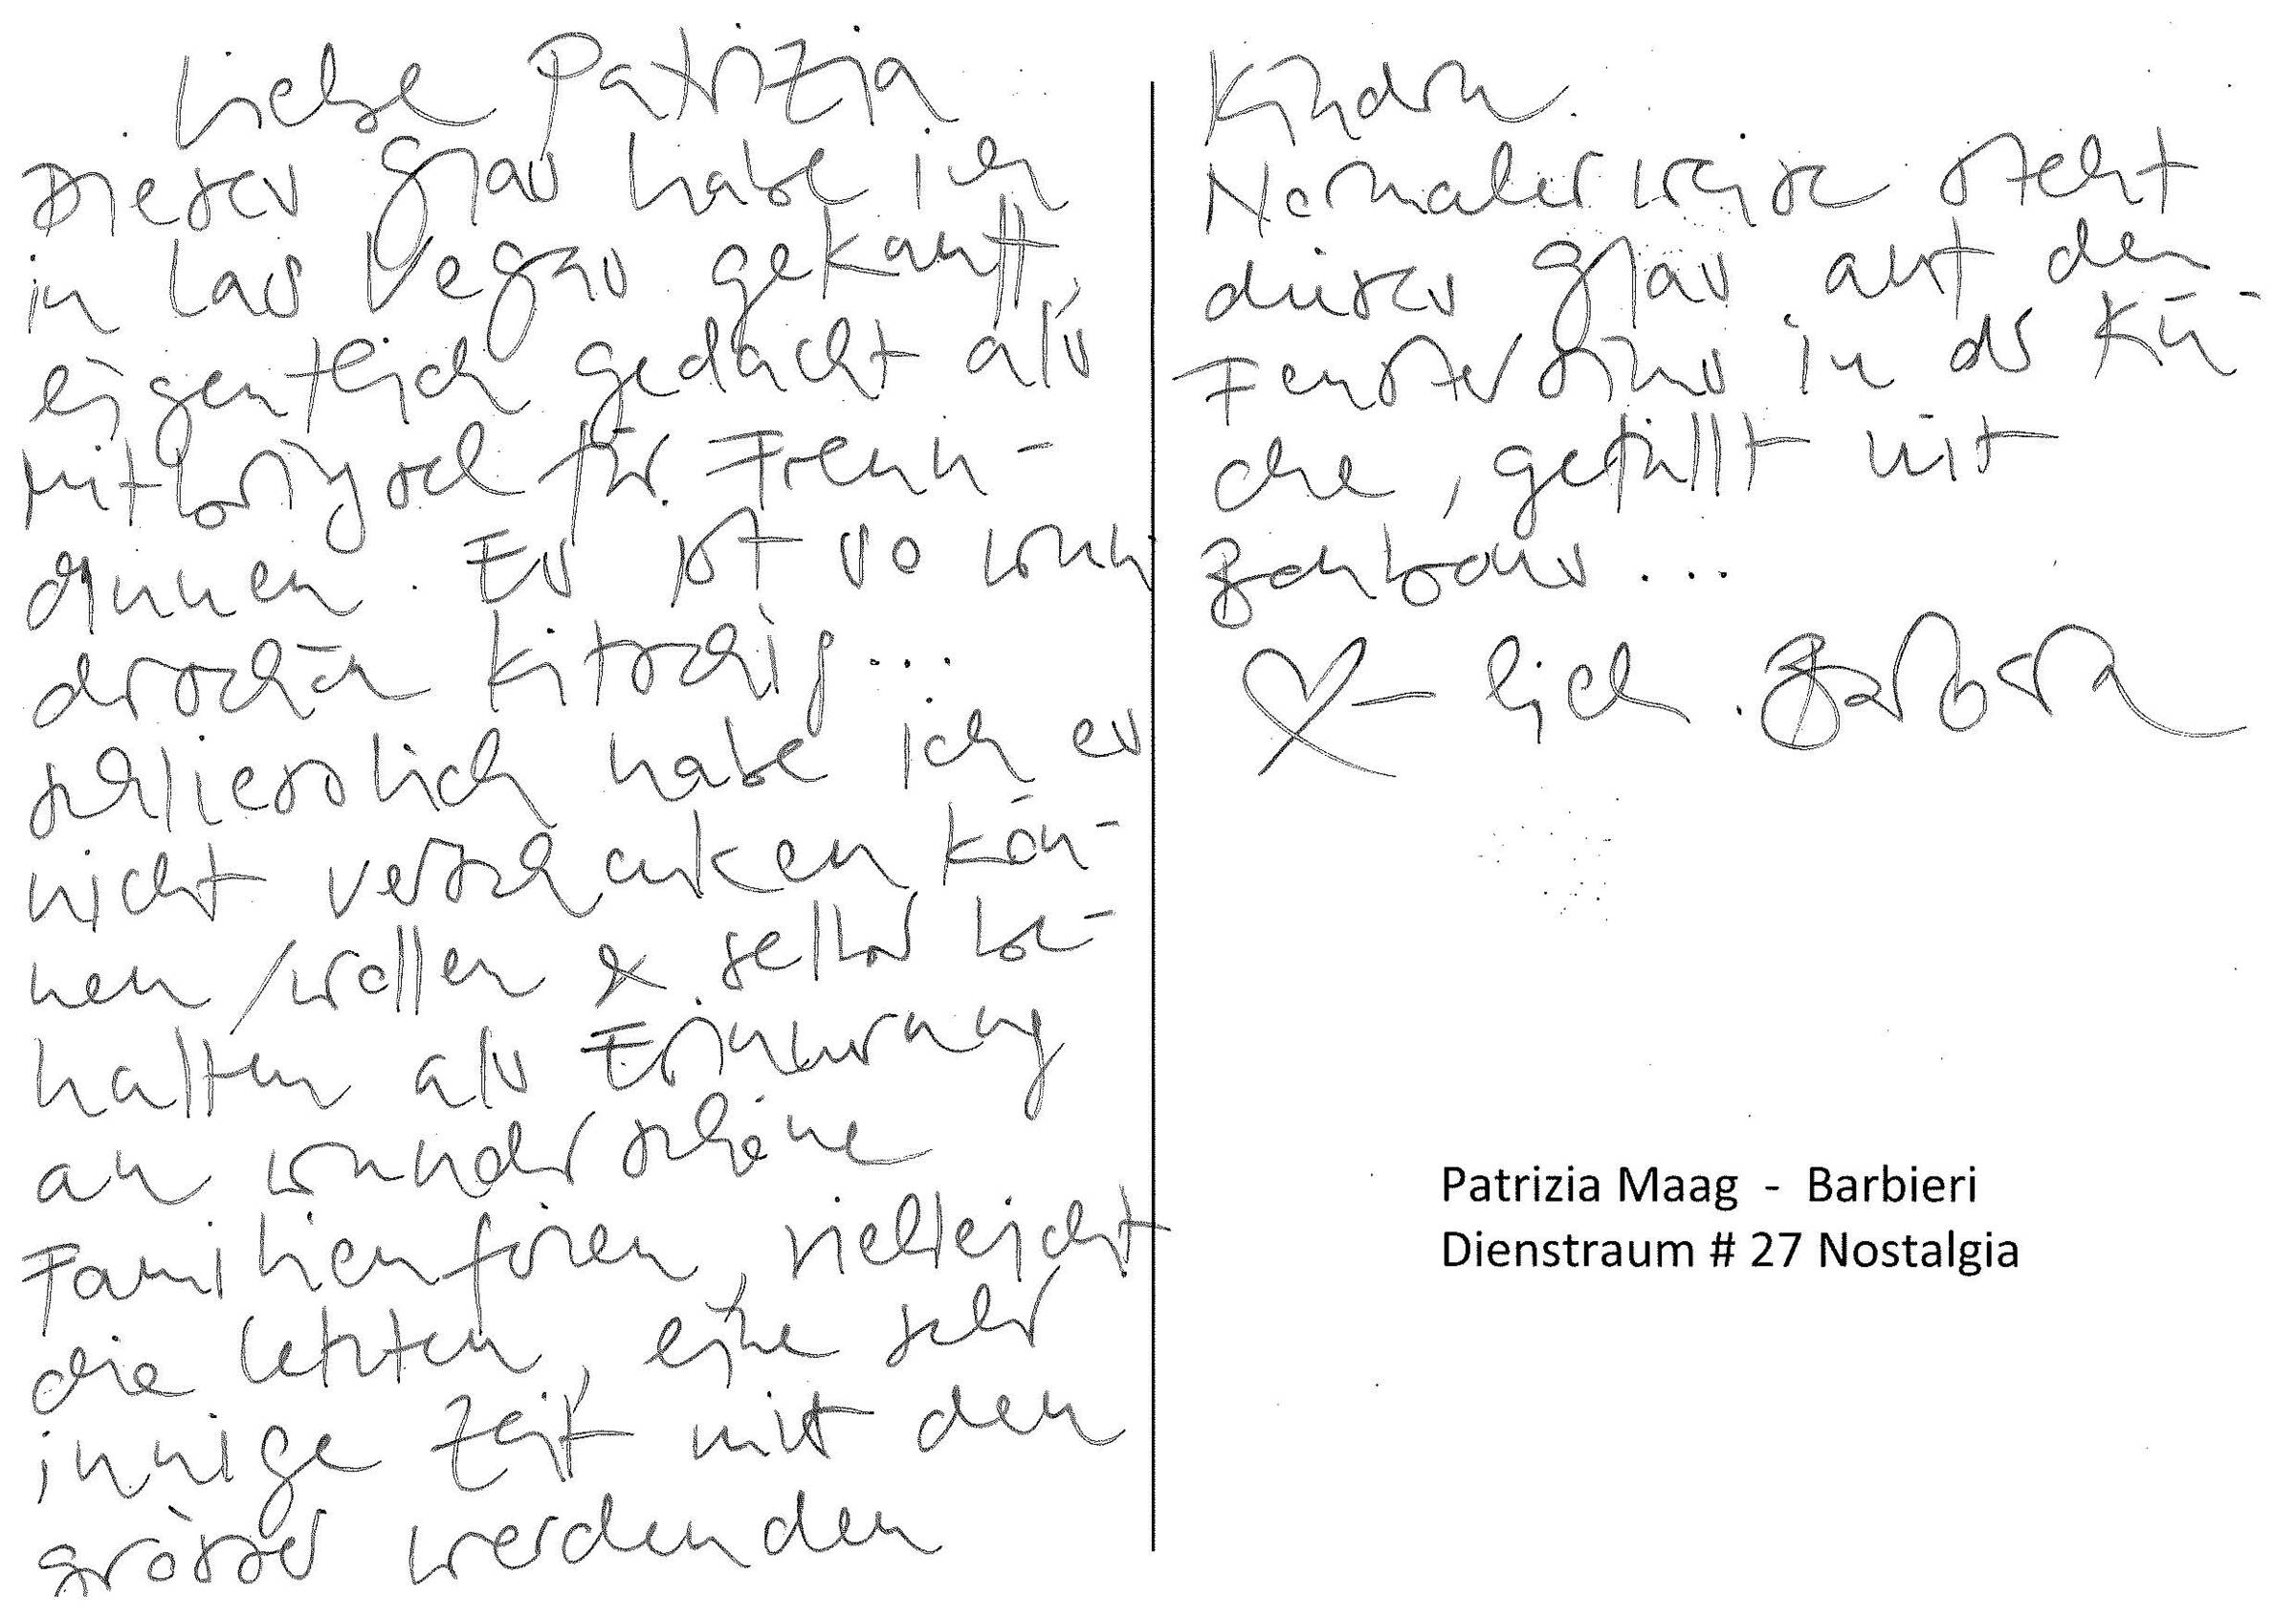 Liebe Patrizia
Dieses Glas habe ich
in Las Vegas gekauft,
eigentlich gedacht als
Mitbringsel für Freun-
dinnen. Es ist so wun
derschön kitschig...
schliesslich habe ich es
nicht verschenken kön-
nen / wollen & selbst be-
halten als Erinnerung
an wunderschöne
Familienferien, vielleicht
die letzten, eine sehr
innige Zeit mit den
grösser werdenden
Kindern.
Normalerweise steht
dieses Glas auf dem
Fenstersims in der Kü-
che, gefüllt mit
Bonbons...
♡-lich. Barbara
Patrizia Maag - Barbieri
Dienstraum # 27 Nostalgia